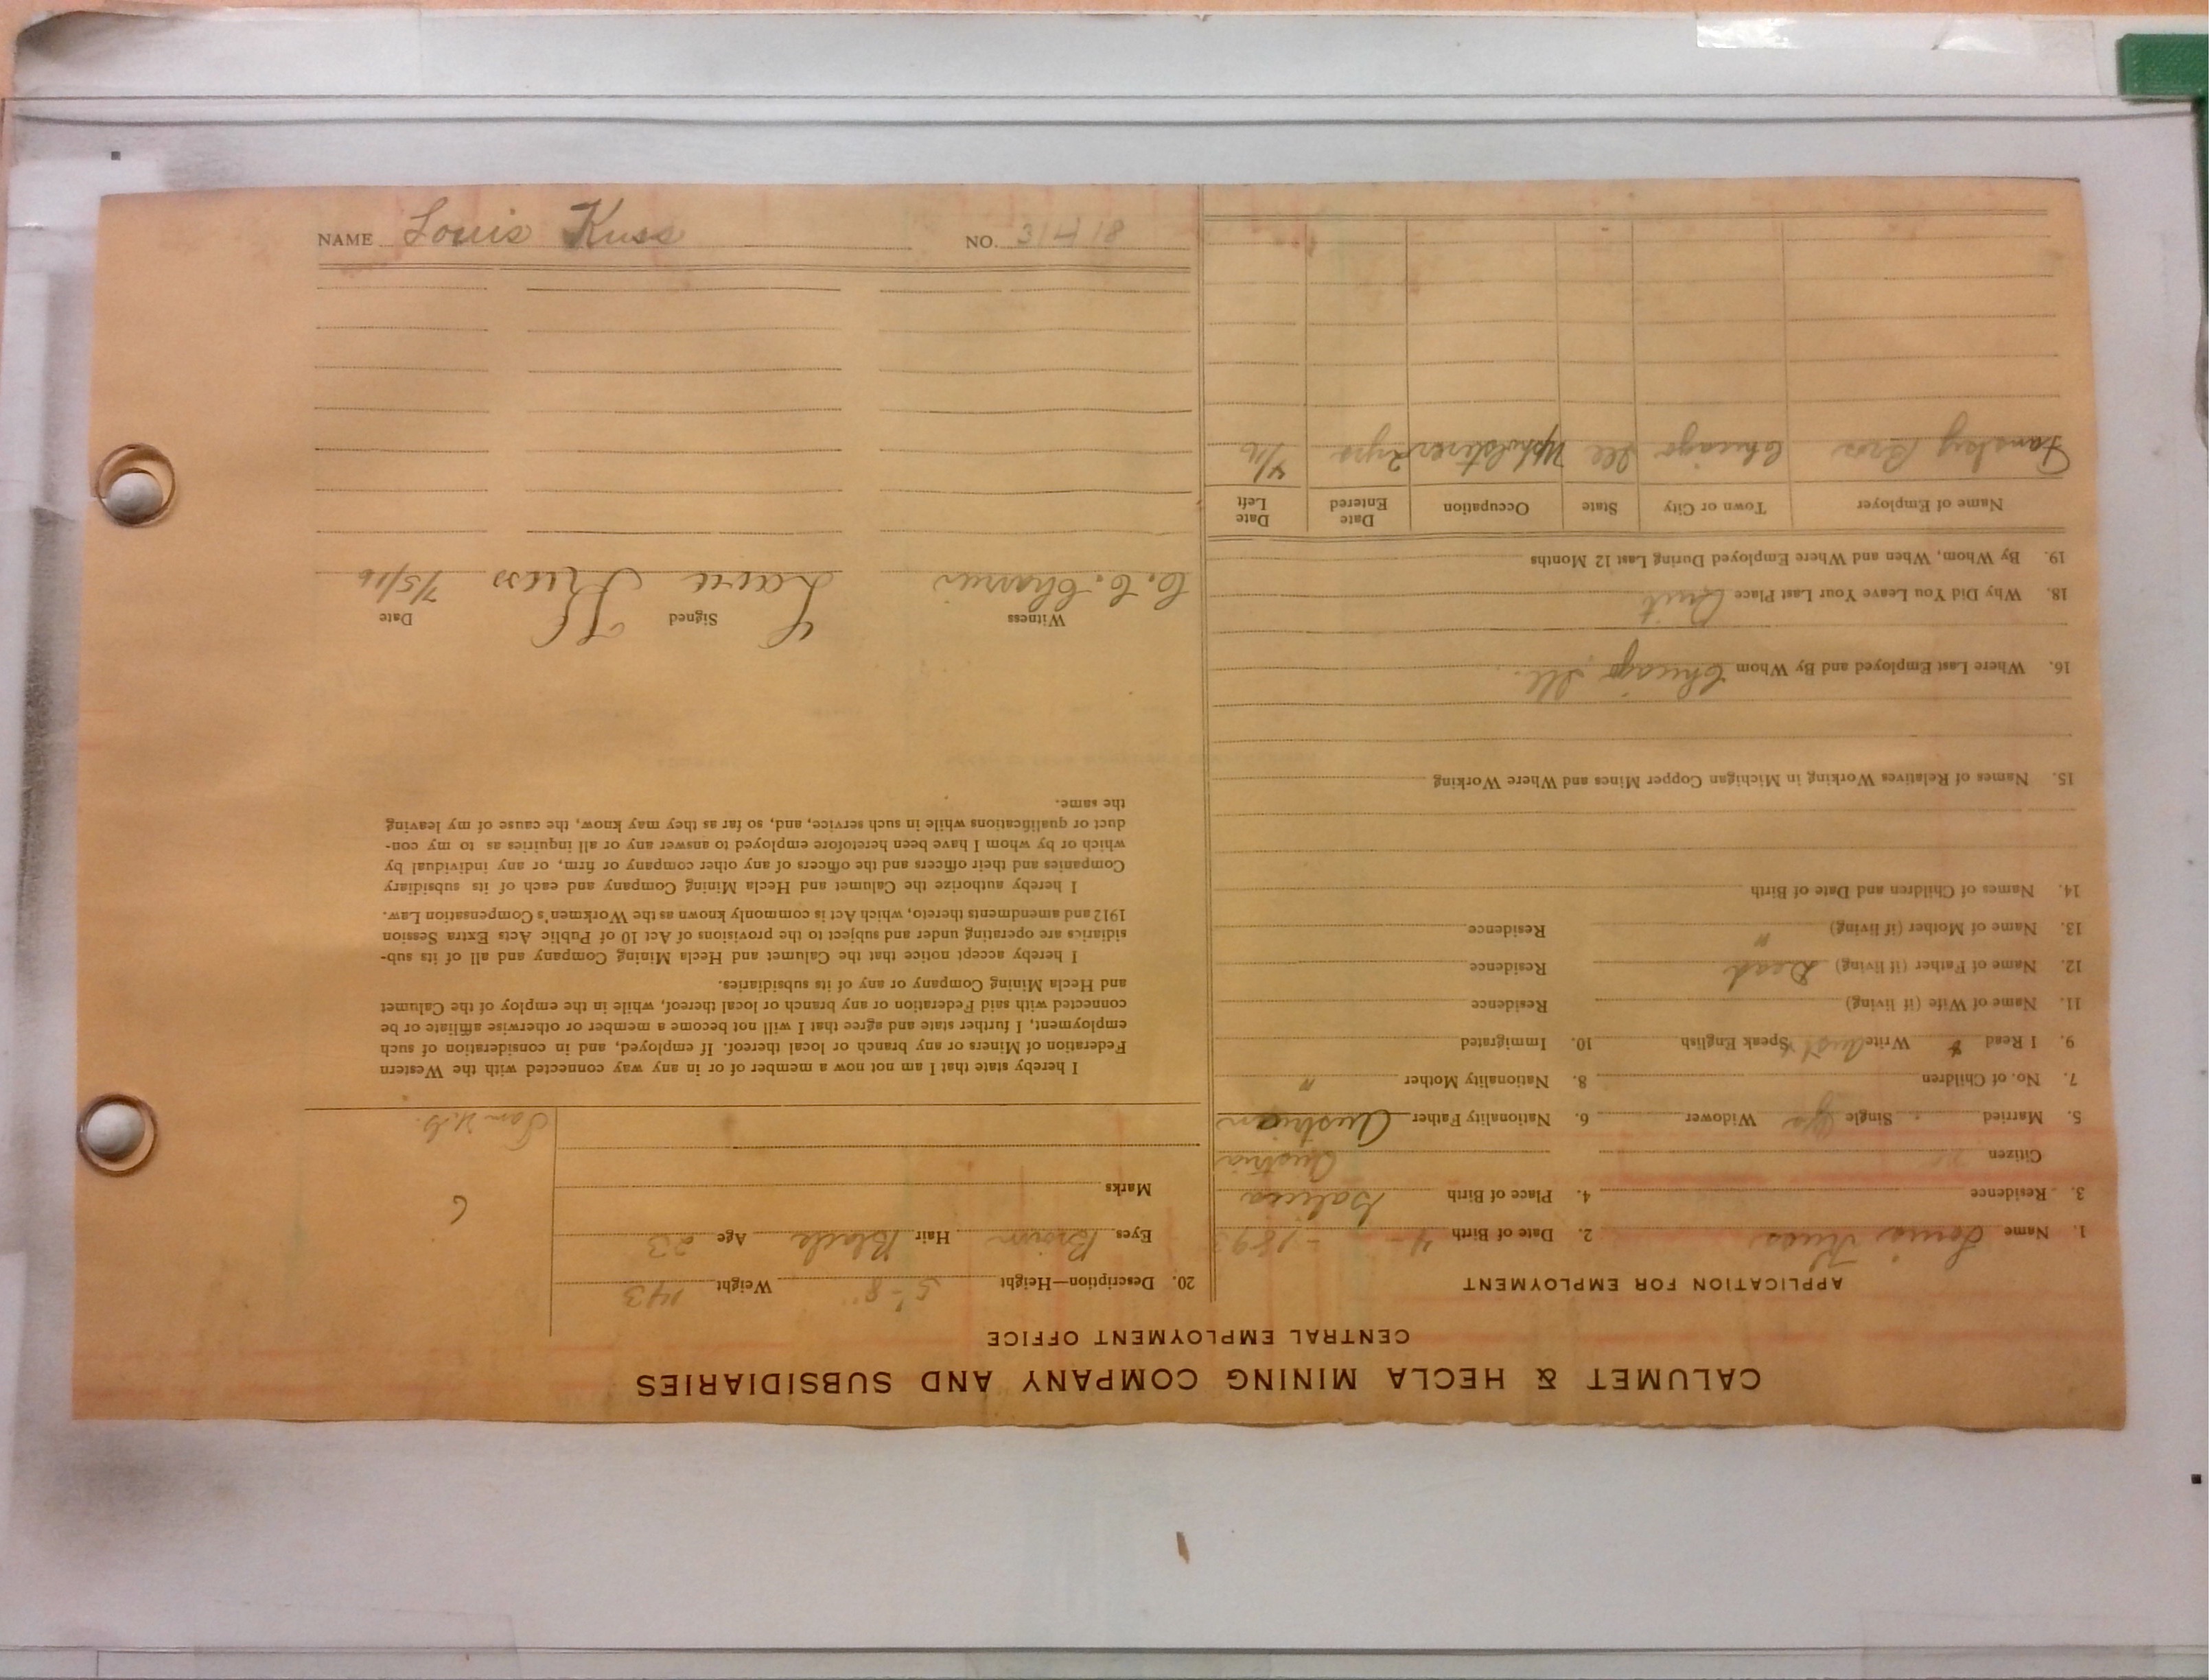 NAME Louis Kuss NO. 31418
CALUMET & HECLA MINING COMPANY AND SUBSIDIARIES
CENTRAL EMPLOYMENT OFFICE
APPLICATION FOR EMPLOYMENT
1. Name Louis Kuss 2. Date of Birth 4 - - 1893
3. Residence 4. Place of Birth Galicia
Citizen no Austria
5. Married Single Yes Widower 6. Nationality Father Austrian
7. No. of Children 8. Nationality Mother "
9. I Read Write Aust Speak English 10. Immigrated
11. Name of Wife (if living) Residence
12. Name of Father (if living) Dead Residence
13. Name of Mother (if living) " Residence
14. Names of Children and Date of Birth
15. Names of Relatives Working in Michigan Copper Mines and Where Working
16. Where Last Employed and By Whom Chicago, Ill.
18. Why Did You Leave Your Last Place Quit
19. By Whom, When and Where Employed During Last 12 Months
Name of Employer Town or City State Occupation Date Entered Date Left
Bros Chicago Ill Upholsterer 2 yrs 4/16
20. Description—Height 5'-8" Weight 143
Eyes Brown Hair Black Age 23
Marks
6
Sam H.G.
I hereby state that I am not now a member of or in any way connected with the Western
Federation of Miners or any branch or local thereof. If employed, and in consideration of such
employment, I further state and agree that I will not become a member or otherwise affiliate or be
connected with said Federation or any branch or local thereof, while in the employ of the Calumet
and Hecla Mining Company or any of its subsidiaries.
I hereby accept notice that the Calumet and Hecla Mining Company and all of its sub-
sidiaries are operating under and subject to the provisions of Act 10 of Public Acts Extra Session
1912 and amendments thereto, which Act is commonly known as the Workmen's Compensation Law.
I hereby authorize the Calumet and Hecla Mining Company and each of its subsidiary
Companies and their officers and the officers of any other company or firm, or any individual by
which or by whom I have been heretofore employed to answer any or all inquiries as to my con-
duct or qualifications while in such service, and, so far as they may know, the cause of my leaving
the same.
Witness Signed Date
C. C. Kuss 7/5/16